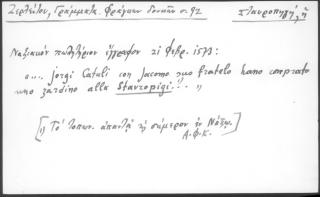 Ζερλέντου, Γράμματα Φράγκων δουκῶν σ. 92
σταυροπηγή, ἡ
Ναξιακὸν πωλητήριον ἔγγραφον 21 Φεβρ. 1573:
"... jorgi Catuli con Jacomo suo fratelo hano conprato
uno zardino alla Stavropigi¹⁾... "
[1) Τὸ τοπων. ἀπαντᾷ καὶ σήμερον ἐν Νάξῳ.]
Α.Φ.Κ.